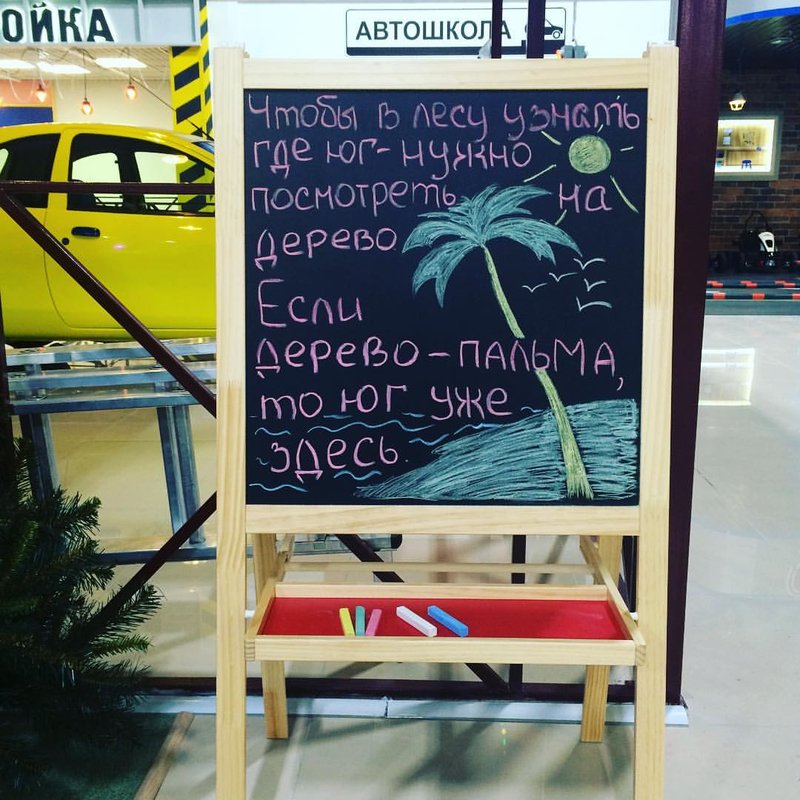 ОЙКА
АВТОШКОЛА
Чтобы в лесу узнать
где юг-нужно
посмотреть на
дерево
Если
дерево-пальма,
то юг уже
здесь.